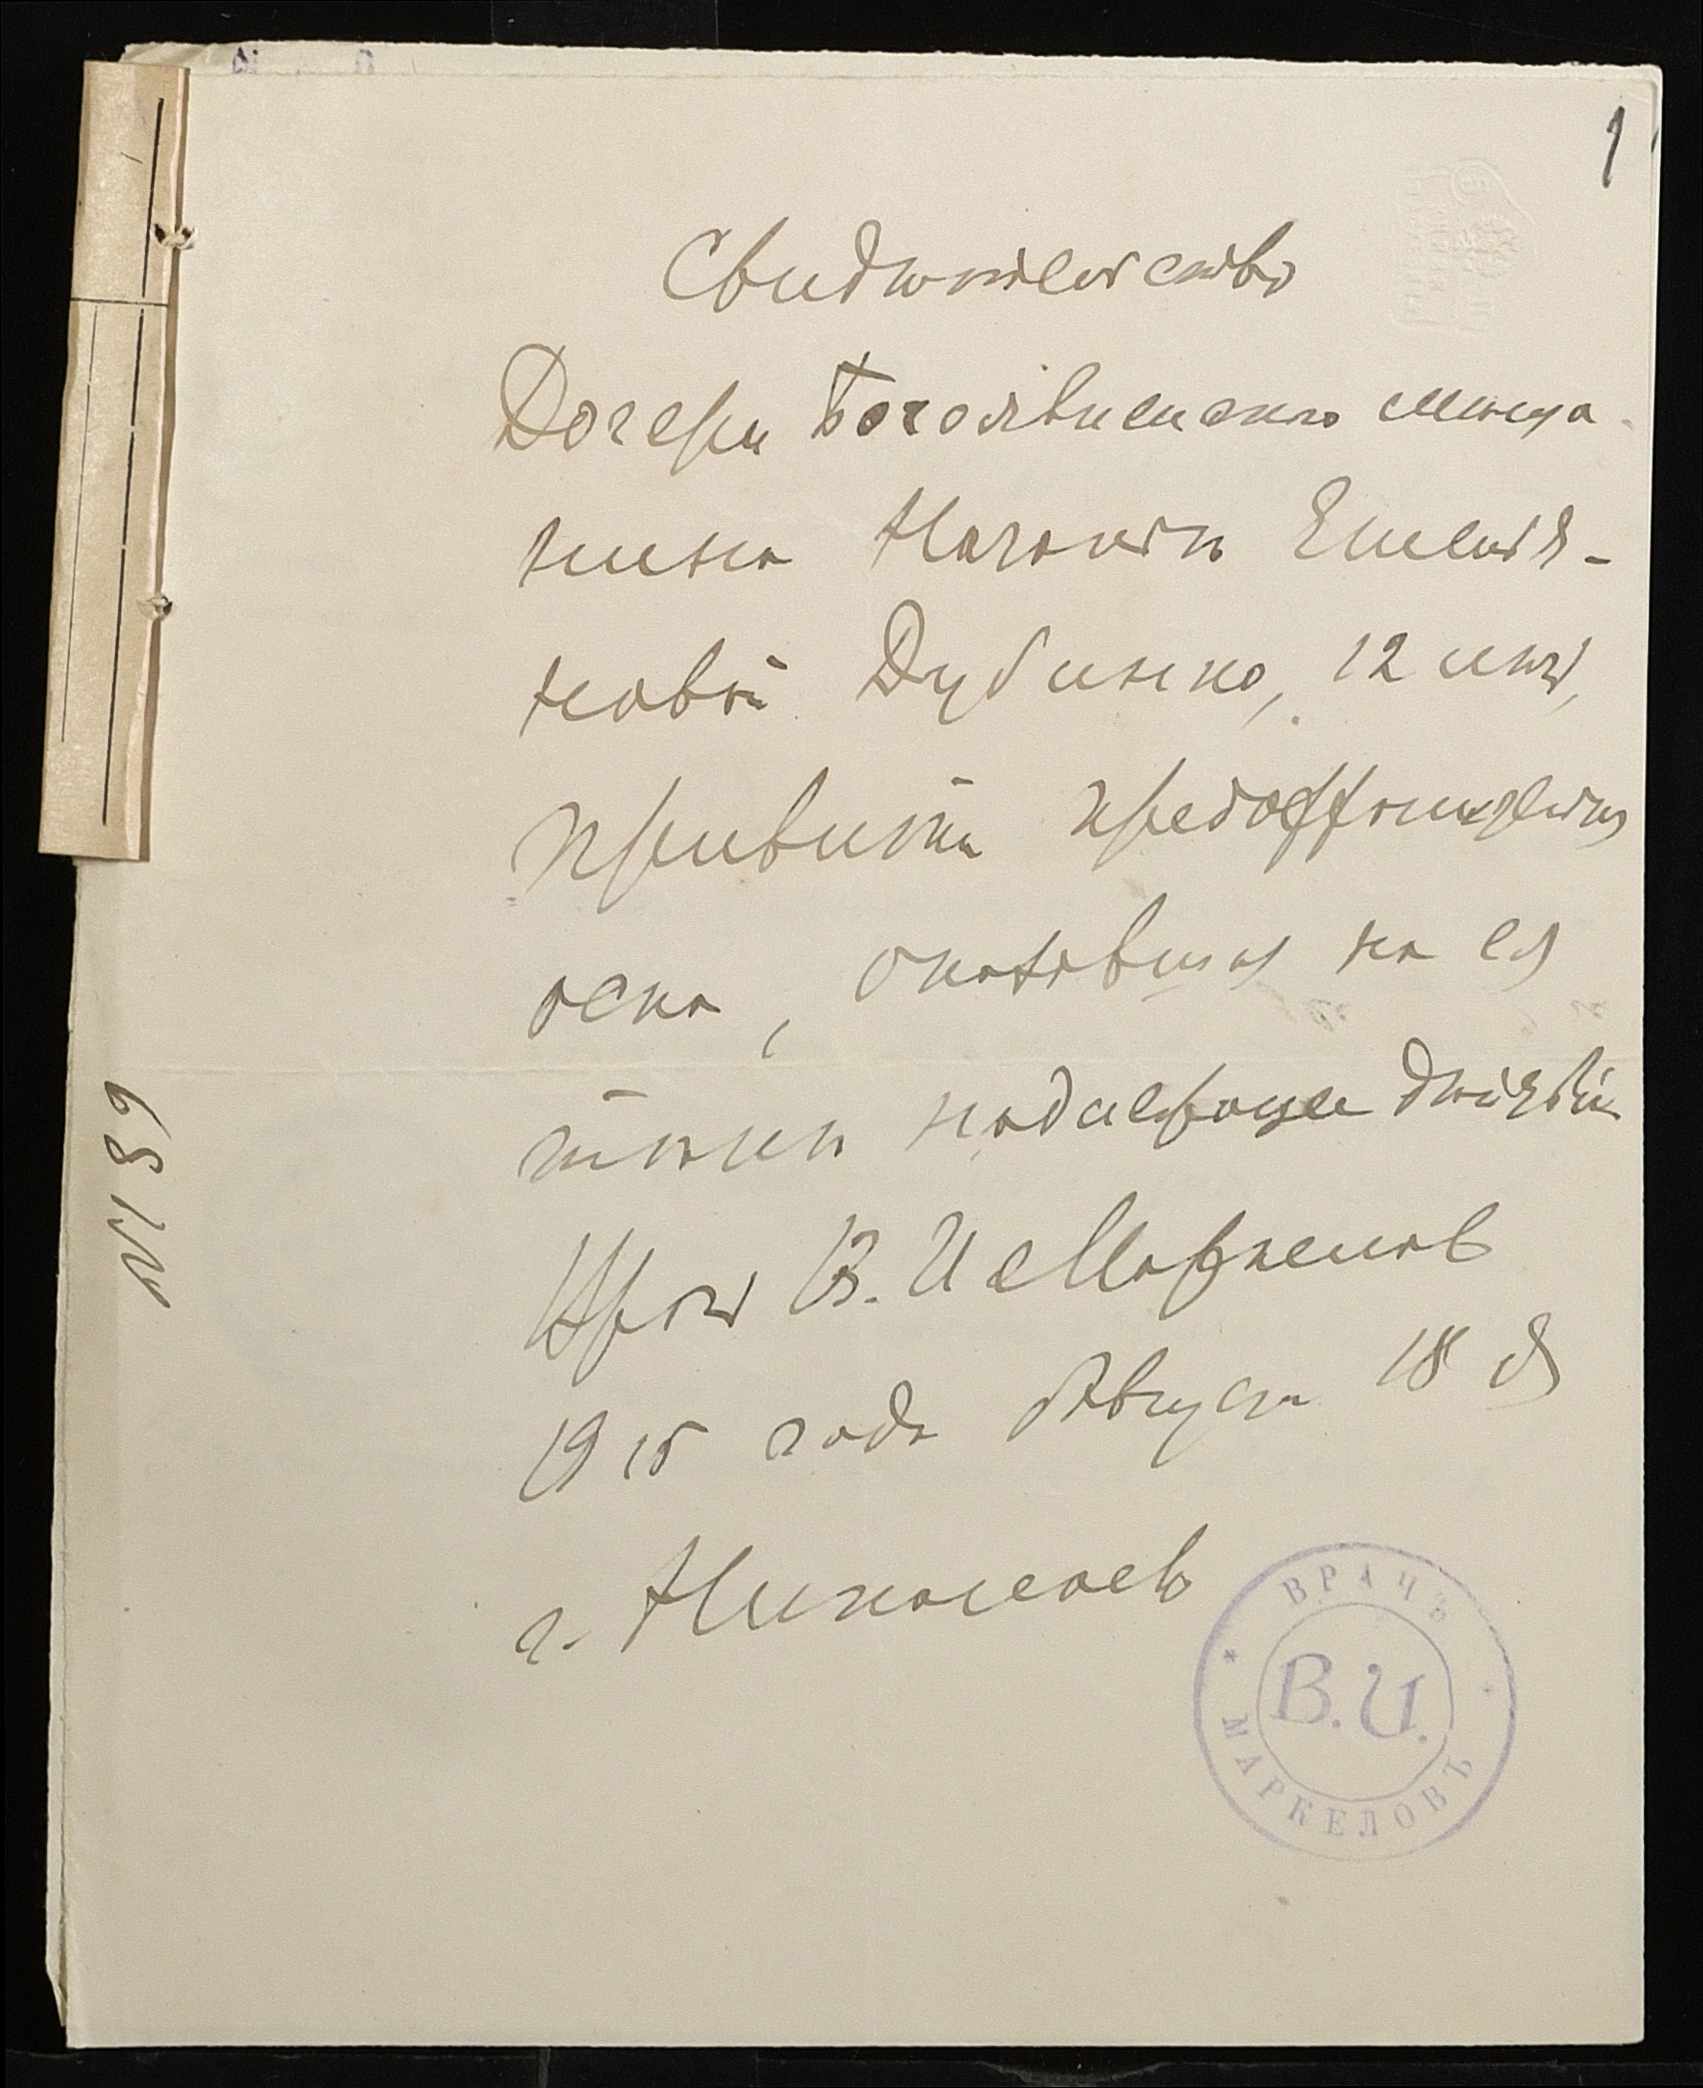 1
Свидѣтельство
Дочери Богоявленскаго мѣща-
нина Наталіи Емелья-
новой Дубинко, 12 лѣтъ,
привита предохранительная
оспа, оказавшая на ея
тѣлѣ надлежащее дѣйствіе
Врачъ В. И Маркелов
1915 года Августа 18 дня
г. Николаев
ВРАЧЪ
В.И.
МАРКЕЛОВЪ
N 159